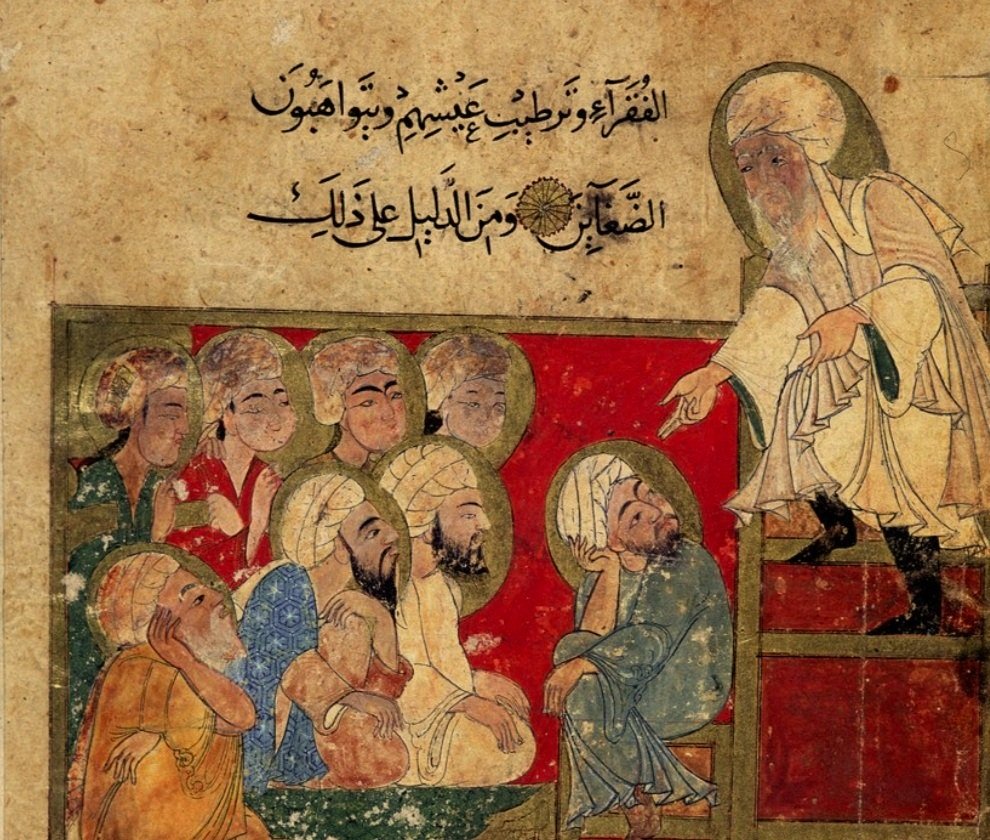 الفُقَرَآءِ وَتَرطِيبِ عَيْشِهِمْ وَيَتَواهَبُونَ
الضَّغَآئِنَ وَمِنَ الدَّلِيلِ عَلى ذَلِكَ